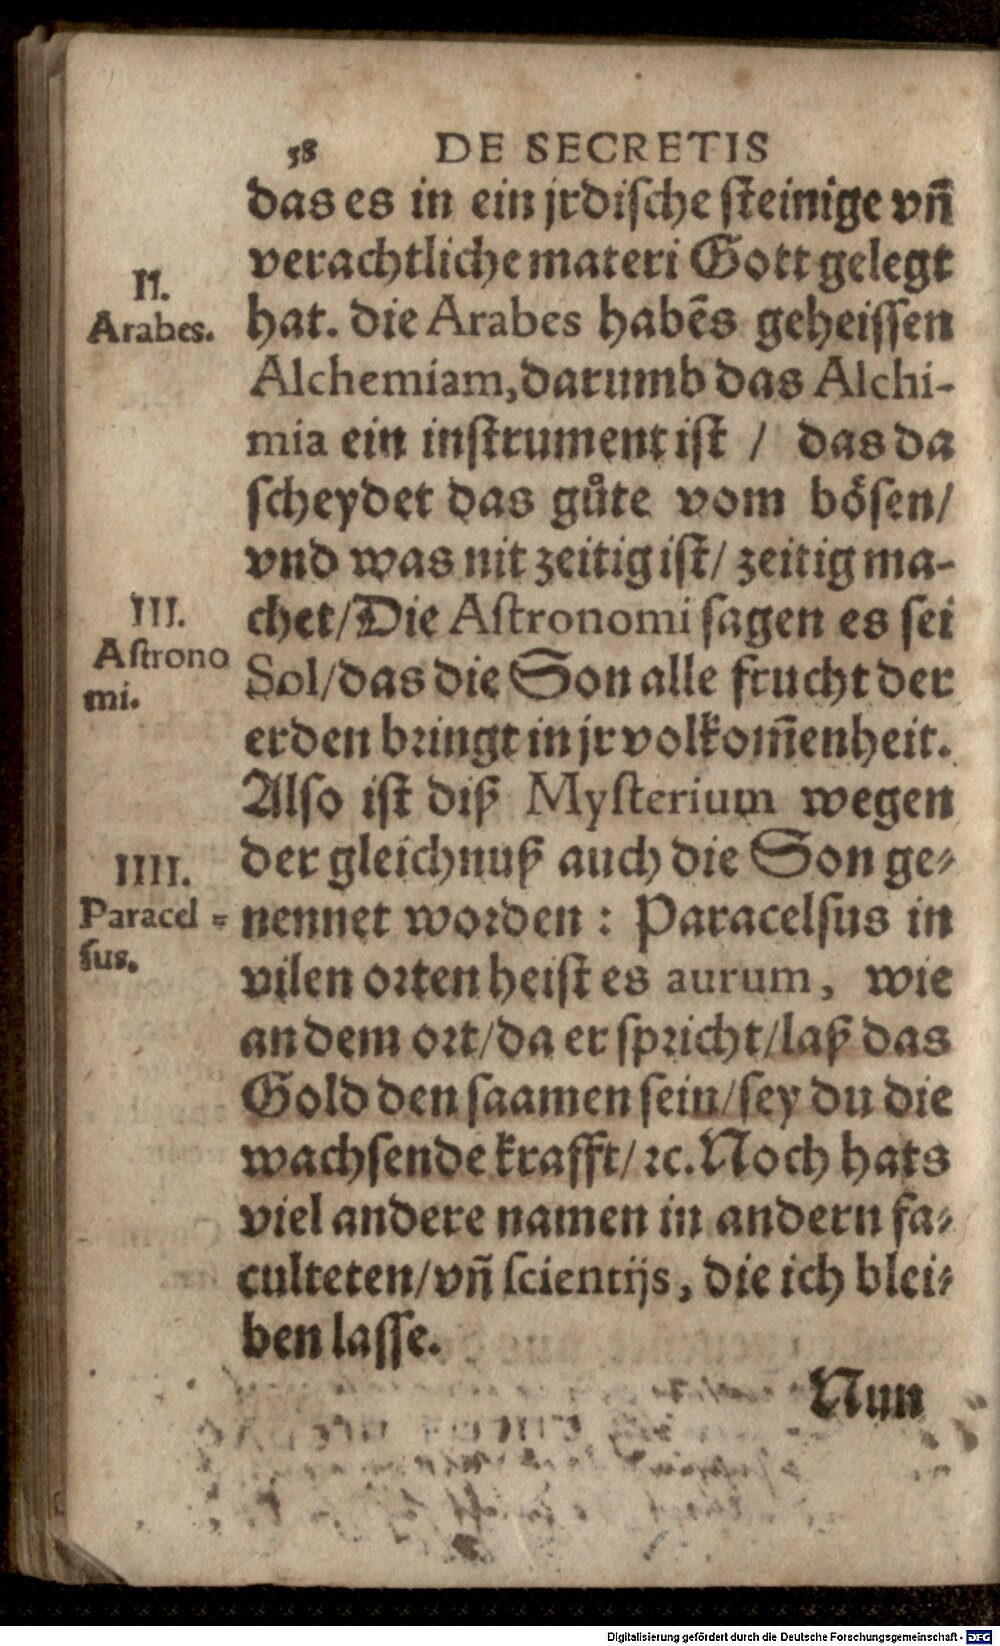 58 DE SECRETIS
das es in ein jrdische steinige vn̄
verachtliche materi Gott gelegt
II.
Arabes.
hat. die Arabes habēs geheissen
Alchemiam, darumb das Alchi-
mia ein instrument ist / das da
scheydet das gůte vom bösen/
vnd was nit zeitig ist/ zeitig ma-
III.
Astrono
mi.
chet/Die Astronomi sagen es sei
Sol/das die Son alle frucht der
erden bringt in jr volkom̄enheit.
Also ist diß Mysterium wegen
der gleichnuß auch die Son ge-
IIII.
Paracel-
sus.
nennet worden : Paracelsus in
vilen orten heist es aurum, wie
an dem ort/da er spricht/laß das
Gold den saamen sein/sey du die
wachsende krafft/ ꝛc. Noch hats
viel andere namen in andern fa-
culteten/vn̄ scientijs, die ich blei-
ben lasse.
Nun
Digitalisierung gefördert durch die Deutsche Forschungsgemeinschaft - DFG